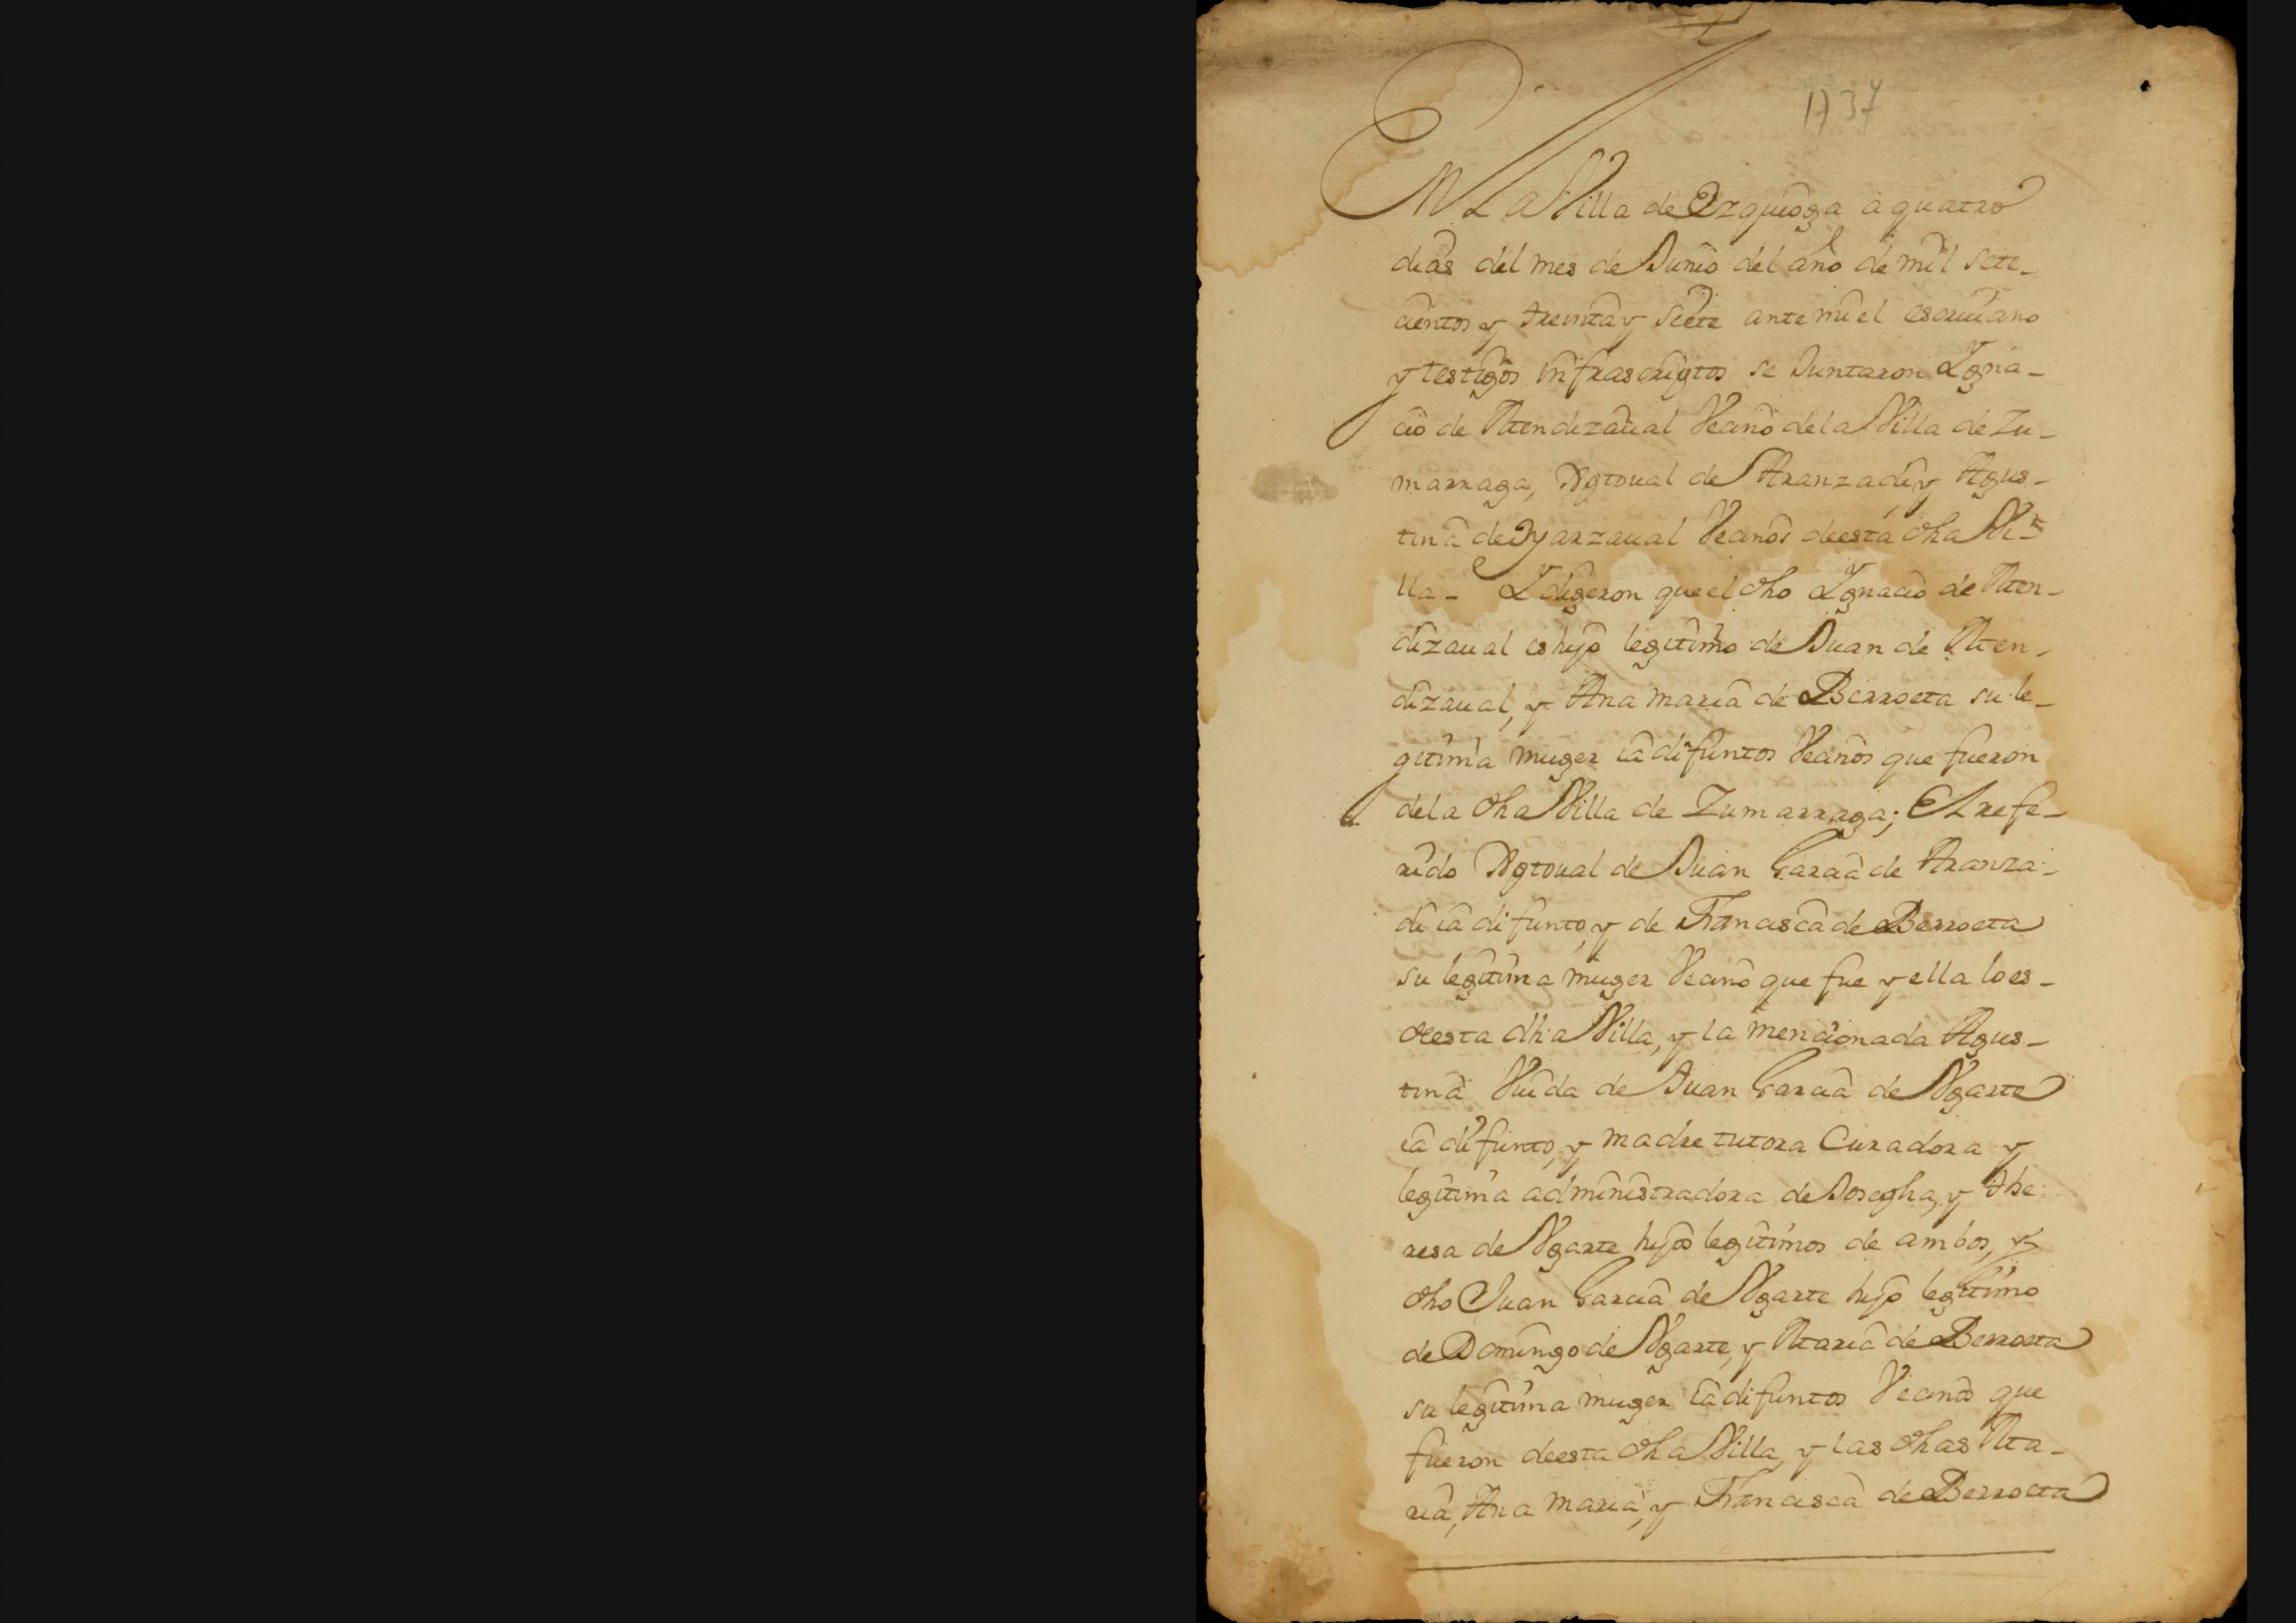 1737
En La Villa de Ezquioga a quatro
dias del mes de Junio del año de mil sete-
cientos y treinta y siete ante mi el escriuano
y testigos infrascriptos se Juntaron Ygna-
cio de Mendizaual Vecino de la Villa de Zu-
marraga, Xptoual de Aranzadi y Agus-
tina de Oyarzaual Vecinos de esta dha Vi-
lla - Y digeron que el dho Ygnacio de Men-
dizaual es hijo legitimo de Juan de Men-
dizaual, y Ana maria de Berroeta su le-
gitima muger ia difuntos Vecinos que fueron
de la dha Villa de Zumarraga; El refe-
rido Xptoual de Juan Garcia de Aranza-
di ia difunto, y de Francisca de Berroeta
su legitima muger Vecino que fue y ella lo es-
desta dha Villa, y la mencionada Agus-
tina Viuda de Juan Garcia de Vgarte
ia difunto, y madre tutora Curadora y
legitima administradora de Josepha, y The
resa de Vgarte hijos legitimos de ambos, y
dho Juan Garcia de Vgarte hijo legitimo
de Domingo de Vgarte, y Maria de Berroeta
su legitima muger ia difuntos Vecinos que
fueron de esta dha Villa, y las dhas Ma-
ria, Ana maria, y Francisca de Berroeta